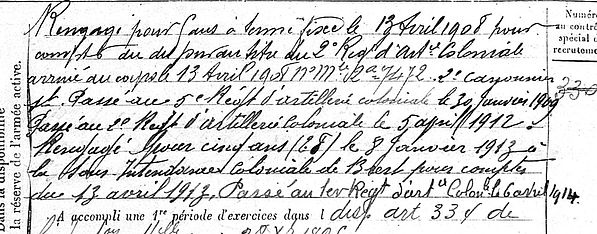 Rengagé pour 5 ans à terme fixe le 13 Avril 1908 pour
compter du dit jour au titre du 2e Régt d'artie Coloniale
arrivé au corps le 13 Avril 1908 No Mle 2a 7472. 2e canonnier
dt. Passé au 5e Régt d'artillerie coloniale le 30 janvier 1909
Passé au 2e Régt d'artillerie Coloniale le 5 april 1912.
Rengagé pour cinq ans le 8 Janvier 1913 à
la Sous Intendance Coloniale de Brest pour compter
du 13 avril 1913, Passé au 1er Régt d'artie Colonle le 6 avril 1914.
A accompli une 1re période d'exercices dans l disp. art 334 de
Dans la disponibilité
la réserve de l'armée active.
Numéro
au contrôle
spécial du
recrutement